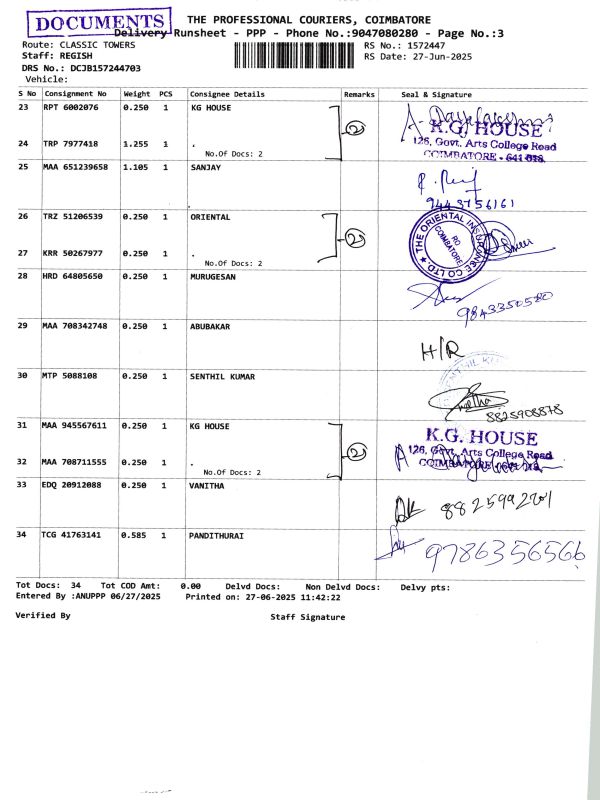 DOCUMENTS
THE PROFESSIONAL COURIERS, COIMBATORE
Delivery Runsheet - PPP - Phone No.:9047080280 - Page No.:3
Route: CLASSIC TOWERS
RS No.: 1572447
Staff: REGISH
RS Date: 27-Jun-2025
DRS No.: DCJB157244703
Vehicle:
S No Consignment No Weight PCS Consignee Details Remarks Seal & Signature
23 RPT 6002076 0.250 1 KG HOUSE
K.G. HOUSE
126, Govt. Arts College Road
COIMBATORE - 641 018.
24 TRP 7977418 1.255 1 .
No.Of Docs: 2
2
25 MAA 651239658 1.105 1 SANJAY
.
9443756161
26 TRZ 51206539 0.250 1 ORIENTAL
THE ORIENTAL INSURANCE CO LTD.
RO
COIMBATORE
27 KRR 50267977 0.250 1 .
No.Of Docs: 2
2
28 HRD 64805650 0.250 1 MURUGESAN
9843350580
29 MAA 708342748 0.250 1 ABUBAKAR
H/R
30 MTP 5088108 0.250 1 SENTHIL KUMAR
8825908878
31 MAA 945567611 0.250 1 KG HOUSE
K.G. HOUSE
126, Govt. Arts College Road
COIMBATORE - 641 018.
32 MAA 708711555 0.250 1 .
No.Of Docs: 2
2
33 EDQ 20912088 0.250 1 VANITHA
8825992201
34 TCG 41763141 0.585 1 PANDITHURAI
9786356566
Tot Docs: 34 Tot COD Amt: 0.00 Delvd Docs: Non Delvd Docs: Delvy pts:
Entered By :ANUPPP 06/27/2025 Printed on: 27-06-2025 11:42:22
Verified By Staff Signature